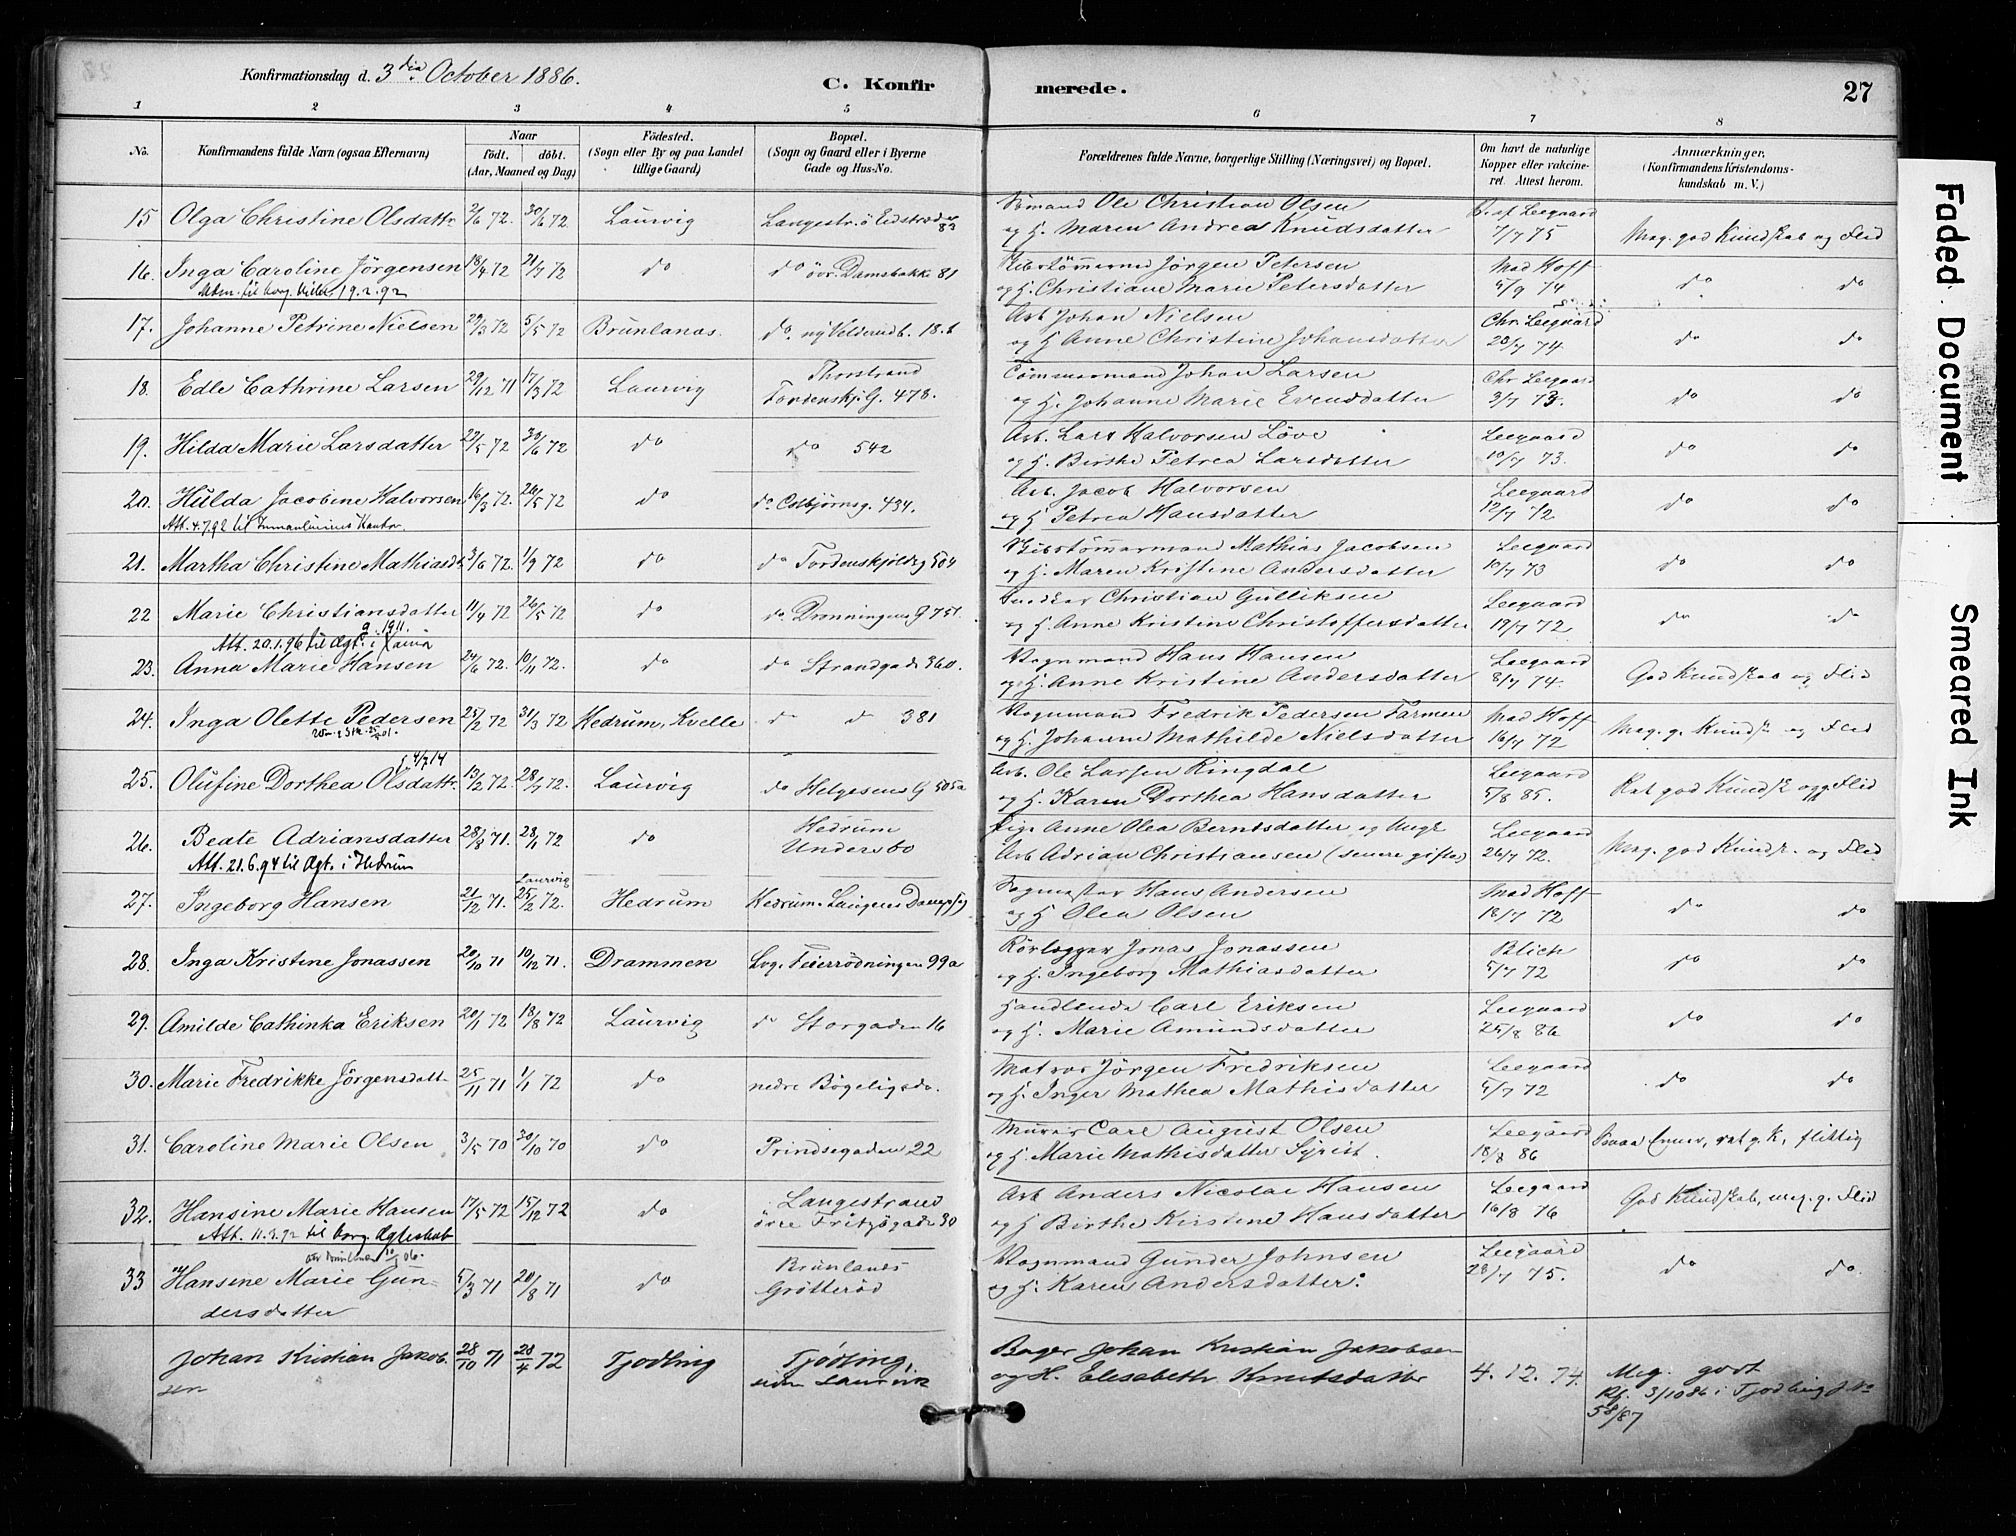 Konfirmationsdag d. 3dia October 1886.
C. Konfir
merede.
27
1 2 3 4 5 6 7 8
No.
Konfirmandens fulde Navn (ogsaa Efternavn)
Naar
født. døbt.
(Aar, Maaned og Dag)
Fødested.
(Sogn eller By og paa Landet tillige Gaard)
Bopæl.
(Sogn og Gaard eller i Byerne Gade og Hus-No.
Forældrenes fulde Navne, borgerlige Stilling (Næringsvei) og Bopæl.
Om havt de naturlige Kopper eller vakcineret. Attest herom.
Anmærkninger.
(Konfirmandens Kristendomskundskab m. V.)
15 Olga Christine Olsdattr 2/6 72. 30/6 72 Laurvig Langestr. ö Eidstrød 83 Sömand Ole Christian Olsen
og H. Maren Andrea Knudsdatter Leegaard 7/7 75 Meg. god Kundskab og Flid
16. Inga Caroline Jörgensen 18/4 72 21/7 72 do do övr. Damsbakke 81 Skibstömmermd Jörgen Petersen
og H. Christiane Marie Petersdatter Mad Hoff 5/9 74 do do
19.2.92
17. Johanne Petrine Nielsen 29/3 72 5/5 72 Brunlanæs. do. 18.b Arb Johan Nielsen
og H Anne Christine Johansdatter Chr. Leegaard 28/7 74. do do
18. Edle Cathrine Larsen 29/12 71 17/3 72 Laurvig Thorstrand
Tordenskj. G. 478. Tömmermand Johan Larsen
og H. Johanne Marie Evensdatter Chr Leegaard 3/7 73. do do
19. Hilda Marie Larsdatter 22/5 72 30/6 72 do do 542 Arb. Lars Halvorsen Löve
og H. Birthe Petrea Larsdatter Leegaard 10/7 73. do do
20. Hulda Jacobine Halvorsen 16/3 72. 26/5 72 do do Osebjörnsg. 434. Arb. Jacob Halvorsen
og H Petrea Hansdatter Leegaard 12/7 72 do do
Att. 4.7.92 til
21. Martha Christine Mathiasdr 3/6 72. 1/9 72 do do Tordenskjoldsg 504 Skibstömmermand Mathias Jacobsen
og H. Maren Kristine Andersdatter Leegaard 10/7 73 do do
22 Marie Christiansdatter 11/4 72 26/5 72 do do Dronningens G 751. Snedker Christian Gulliksen
og H. Anne Kristine Christoffersdatter Leegaard 19/7 72 do do
g. 1911.
Att. 20.1.96 til Ægt. i Xania
23. Anna Marie Hansen 24/6 72. 10/11 72. do do Strandgade 360. Vognmand Hans Hansen
og H. Anne Kristine Andersdatter Leegaard 8/7 74. God Kundskab og Flid
24. Inga Olette Pedersen 25/2 72 31/3 72 Hedrum, Kvelle do do 381 Vognmand Fredrik Pedersen Farmen
og H. Johanne Mathilde Nielsdatter Mad Hoff 16/7 72 Meg. g. Kundsk og Flid
25. Olufine Dorthea Olsdattr. 13/2 72. 28/7 72. Laurvig do Helgesens G 505a Arb. Ole Larsen Ringdal
og H. Karen Dorthea Hansdatter Leegaard 5/8 85. Ret god Kundsk og g. Flid
26. Beate Adriansdatter 28/8 71. 28/1 72 do Hedrum
Undersbo Pige Anne Olea Berntsdatter og Ungk
Arb Adrian Christiansen (senere gifte) Leegaard 26/7 72. Meg. god Kundsk. og Flid
Att. 21.6.94 til Ægt. i Hedrum
27. Ingeborg Hansen 21/12 71. Laurvig 25/2 72. Hedrum Hedrum. Laugens Dampsag Sagmester Hans Andersen
og H Olea Olsen Mad Hoff 18/7 72 do do
28. Inga Kristine Jonassen 20/10 71 10/12 71. Drammen Lvg. Feierrødningen 99a Rörlægger Jonas Jonassen
og H. Ingeborg Mathiasdatter Blich 5/7 72 do do
29. Amilde Cathinka Eriksen 20/1 72 18/8 72 Laurvig do Storgaden 16 Handlende Carl Eriksen
og H. Marie Amundsdatter Leegaard 25/8 86 do do
30. Marie Fredrikke Jörgensdatt- 25/11 71 1/1 72 do nedre Bögeligade. Matros Jörgen Fredriksen
og H. Inger Mathea Mathisdatter Leegaard 5/7 72 do do
31. Caroline Marie Olsen 3/5 70 30/10 70 do Prindsegaden 22 Murer Carl August Olsen
og H. Marie Mathisdatter Syrist. Leegaard 18/8 86 ret g. K, flittig
32. Hansine Marie Hansen 17/5 72 15/12 72 do Langestrand
övre Fritzögade 30 Arb Anders Nicolai Hansen
og H Birthe Kirstine Hansdatter Leegaard 16/8 76 God Kundskab, meg. g. Flid
Att. 11.3.92 til borg. Ægteskab
33 Hansine Marie Gun-
dersdatter 5/3 71 20/8 71 do Brunlanes
Grötteröd Vognmand Gunder Johnsen
og H. Karen Andersdatter. Leegaard 28/7 75. do do.
Johan Kristian Jakob-
sen 28/10 71 28/4 72 Tjodling Tjodling,
siden Laurvik Bager Johan Kristian Jakobsen
og H. Elisabeth Knutsdatter 4.12.74. Meg. godt
Kf. 3/10 86 i Tjodling J No
58/87
Faded Document
Smeared Ink